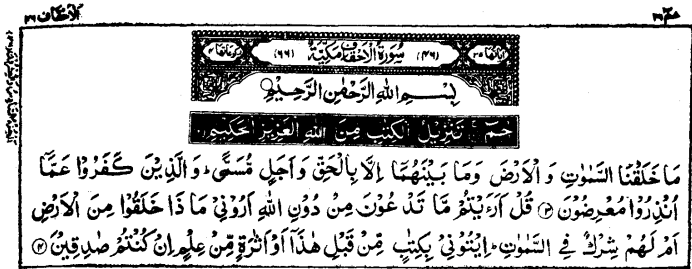 حٰمٓ ٢٦
الاحقاف ٤٦
اٰیَاتُهَا ٣٥ (٤٦) سُوْرَةُ الْاَحْقَافِ مَكِّيَّةٌ (٦٦) رُكُوْعَاتُهَا ٤
بِسْمِ اللهِ الرَّحْمٰنِ الرَّحِيْمِ
حٰمٓ ۚ تَنْزِيْلُ الْكِتٰبِ مِنَ اللهِ الْعَزِيْزِ الْحَكِيْمِ
مَا خَلَقْنَا السَّمٰوٰتِ وَ الْاَرْضَ وَمَا بَيْنَهُمَاۤ اِلَّا بِالْحَقِّ وَ اَجَلٍ مُّسَمًّى ؕ وَ الَّذِيْنَ كَفَرُوْا عَمَّاۤ
اُنْذِرُوْا مُعْرِضُوْنَ ﴿٣﴾ قُلْ اَرَءَيْتُمْ مَّا تَدْعُوْنَ مِنْ دُوْنِ اللهِ اَرُوْنِيْ مَا ذَا خَلَقُوْا مِنَ الْاَرْضِ
اَمْ لَهُمْ شِرْكٌ فِي السَّمٰوٰتِ ؕ اِيْتُوْنِيْ بِكِتٰبٍ مِّنْ قَبْلِ هٰذَاۤ اَوْ اَثٰرَةٍ مِّنْ عِلْمٍ اِنْ كُنْتُمْ صٰدِقِيْنَ ﴿٤﴾